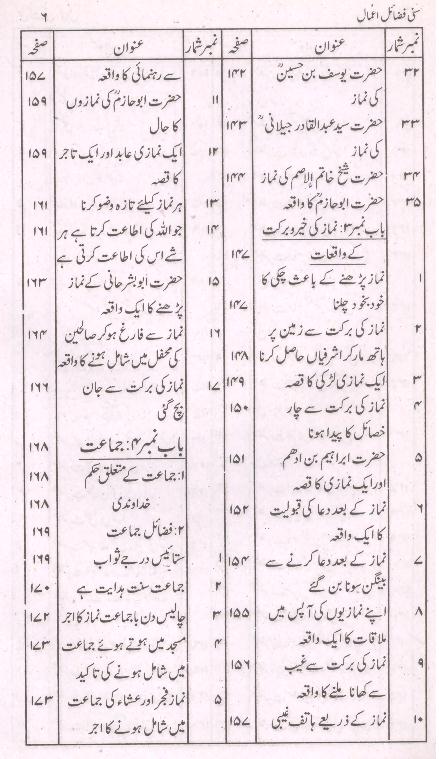 سنی فضائل اعمال ۶
نمبر شمار عنوان صفحہ
۳۲ حضرت یوسف بن حسینؒ ۱۴۲
کی نماز
۳۳ حضرت سید عبدالقادر جیلانیؒ ۱۴۳
کی نماز
۳۴ حضرت شیخ خاتم الاصم کی نماز ۱۴۴
۳۵ حضرت ابوحازمؒ کا واقعہ
باب نمبر ۳: نماز کی خیر و برکت
کے واقعات ۱۴۷
۱ نماز پڑھنے کے باعث چکی کا
خود بخود چلنا ۱۴۷
۲ نماز کی برکت سے زمین پر
ہاتھ مار کر اشرفیاں حاصل کرنا ۱۴۸
۳ ایک نمازی لڑکی کا قصہ ۱۴۹
۴ نماز کی برکت سے چار ۱۵۰
خصائل کا پیدا ہونا
۵ حضرت ابراہیم بن ادھم ۱۵۱
اور ایک نمازی کا قصہ
۶ نماز کے بعد دعا کی قبولیت ۱۵۲
کا ایک واقعہ
۷ نماز کے بعد دعا کرنے سے ۱۵۴
بینگن سونا بن گئے
۸ اپنے نمازیوں کی آپس میں ۱۵۵
ملاقات کا ایک واقعہ
۹ نماز کی برکت سے غیب ۱۵۶
سے کھانا ملنے کا واقعہ
۱۰ نماز کے ذریعے ہاتف غیبی ۱۵۷
نمبر شمار عنوان صفحہ
سے رہنمائی کا واقعہ ۱۵۷
۱۱ حضرت ابوحازمؒ کی نمازوں ۱۵۹
کا حال
۱۲ ایک نمازی عابد اور ایک تاجر ۱۵۹
کا قصہ
۱۳ ہر نماز کیلئے تازہ وضو کرنا ۱۶۱
۱۴ جو اللہ کی اطاعت کرتا ہے ہر ۱۶۱
شے اس کی اطاعت کرتی ہے
۱۵ حضرت ابو بشر حانی کے نماز ۱۶۳
پڑھنے کا ایک واقعہ
۱۶ نماز سے فارغ ہو کر صالحین ۱۶۴
کی محفل میں شامل ہونے کا واقعہ
۱۷ نماز کی برکت سے جان ۱۶۶
بچ گئی
باب نمبر ۴: جماعت ۱۶۸
۱: جماعت کے متعلق حکم ۱۶۸
خداوندی ۱۶۸
۲: فضائل جماعت ۱۶۹
۱ ستائیس درجے ثواب ۱۶۹
۲ جماعت سنت ہدایت ہے ۱۷۰
۳ چالیس دن باجماعت نماز کا اجر ۱۷۲
۴ مسجد میں ہوتے ہوئے جماعت ۱۷۳
میں شامل ہونے کی تاکید
۵ نماز فجر اور عشاء کی جماعت ۱۷۳
میں شامل ہونے کا اجر